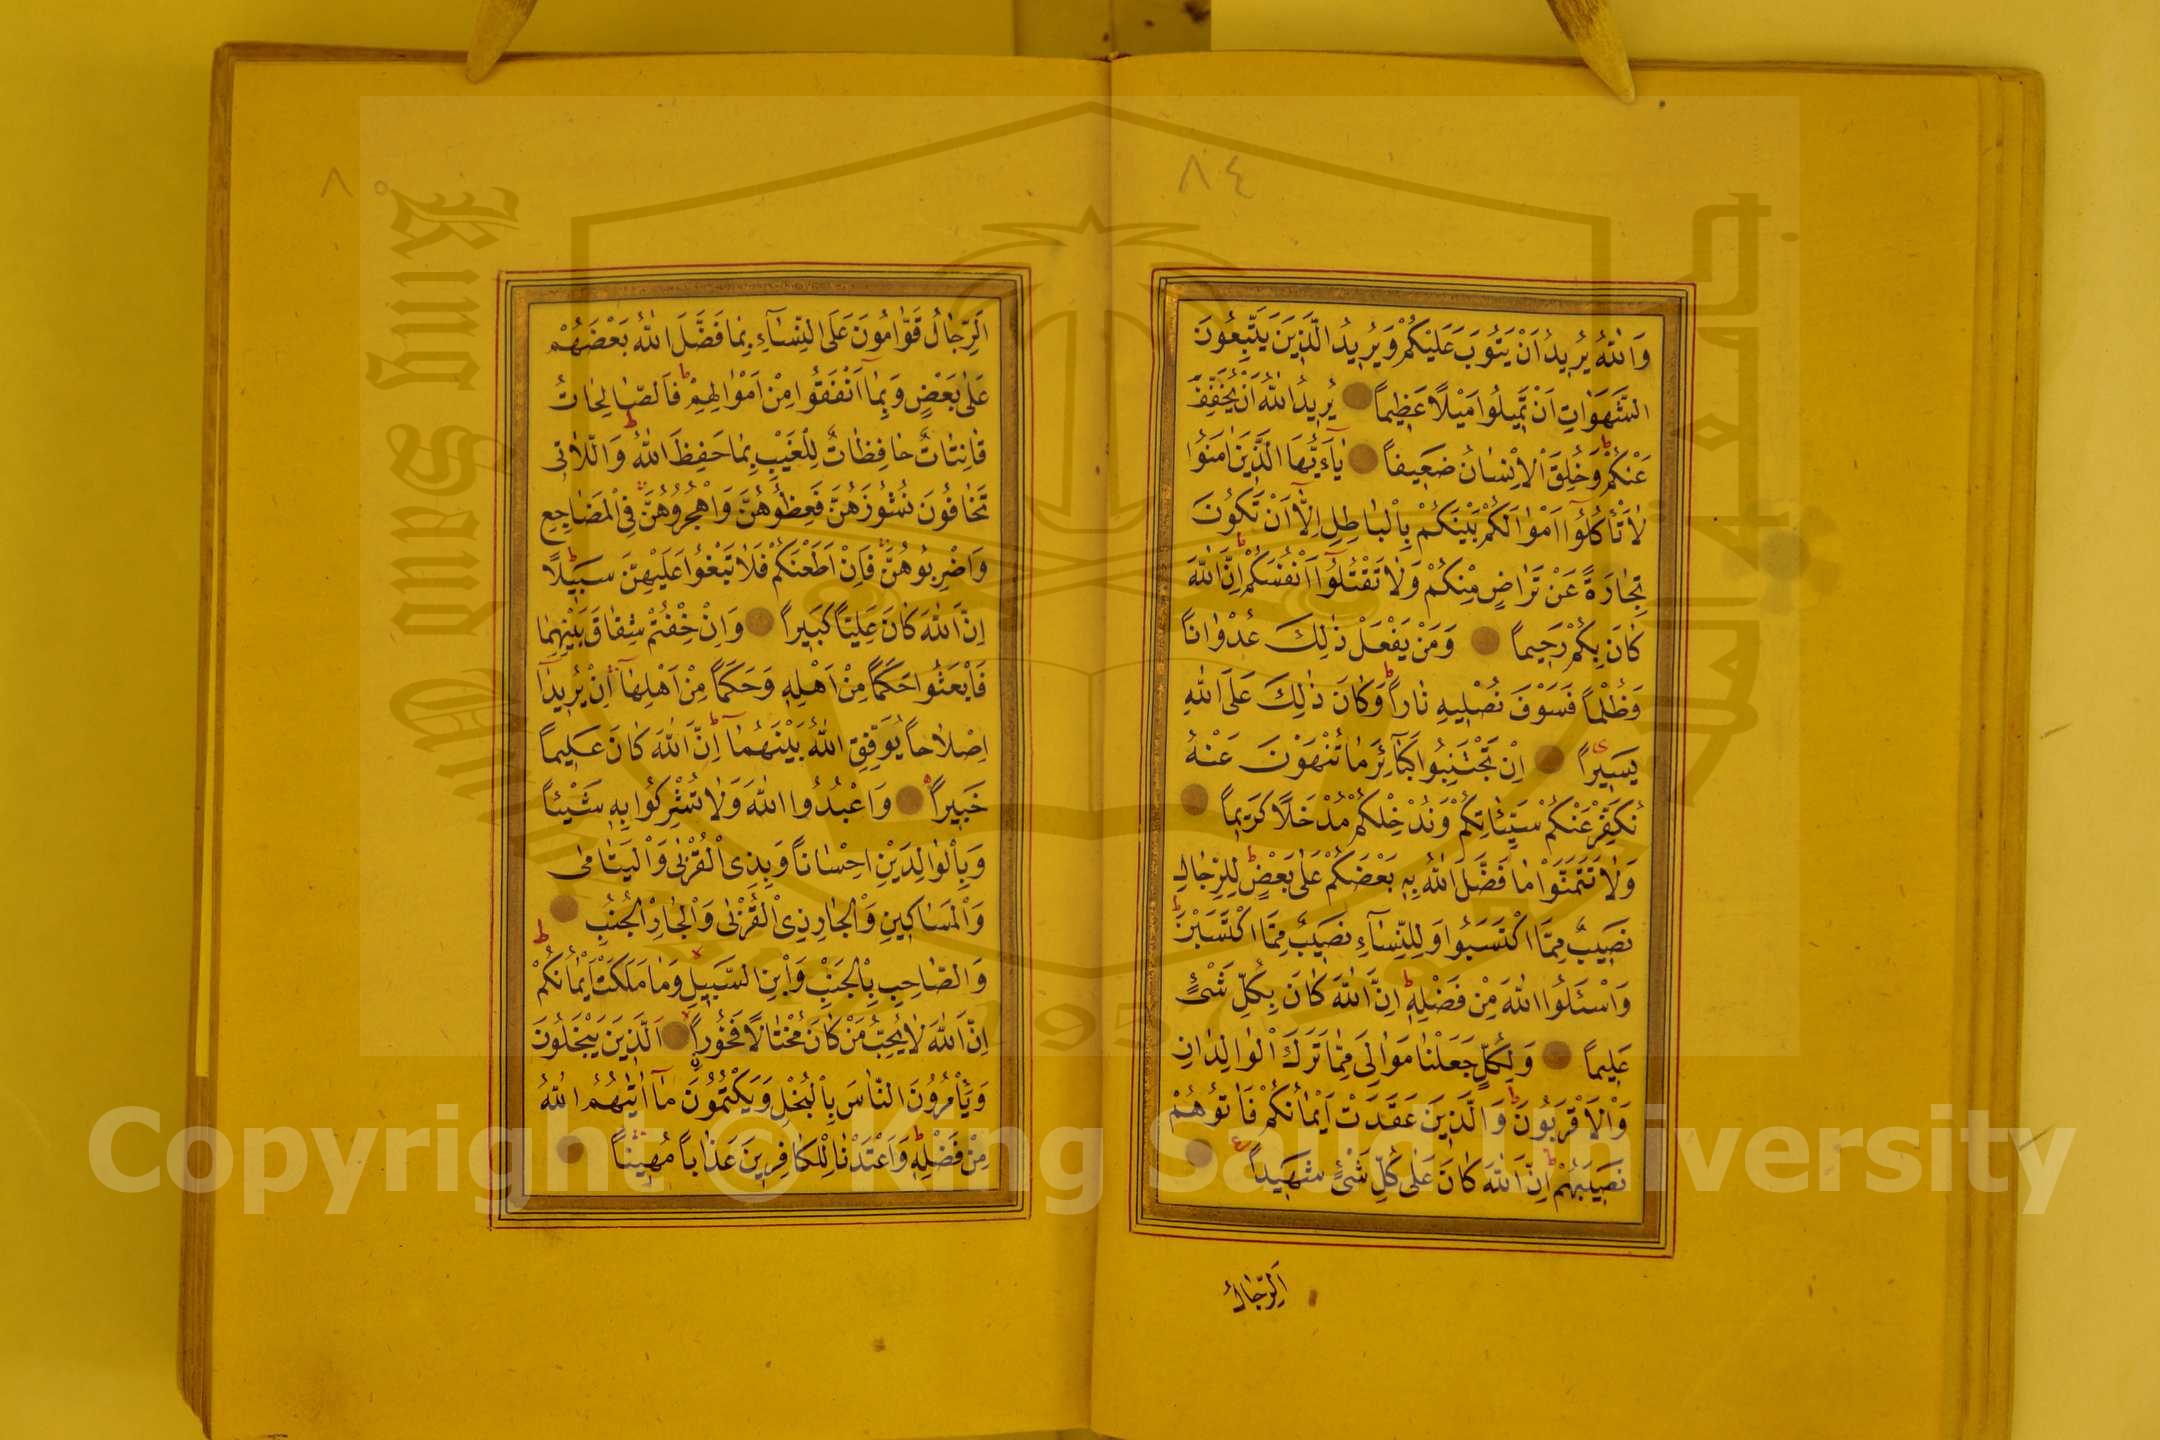 ٨٤
وَاللّٰهُ يُرِيدُ اَنْ يَتُوبَ عَلَيْكُمْ وَيُرِيدُ الَّذِينَ يَتَّبِعُونَ
الشَّهَوَاتِ اَنْ تَمِيلُوا مَيْلًا عَظِيماً يُرِيدُ اللّٰهُ اَنْ يُخَفِّفَ
عَنْكُمْ وَخُلِقَ الْاِنْسَانُ ضَعِيفاً يَٓا اَيُّهَا الَّذِينَ اٰمَنُوا
لَا تَأْكُلُٓوا اَمْوَالَكُمْ بَيْنَكُمْ بِالْبَاطِلِ اِلَّٓا اَنْ تَكُونَ
تِجَارَةً عَنْ تَرَاضٍ مِنْكُمْ وَلَا تَقْتُلُٓوا اَنْفُسَكُمْ اِنَّ اللّٰهَ
كَانَ بِكُمْ رَحِيماً وَمَنْ يَفْعَلْ ذٰلِكَ عُدْوَاناً
وَظُلْماً فَسَوْفَ نُصْلِيهِ نَاراً وَكَانَ ذٰلِكَ عَلَى اللّٰهِ
يَسِيراً اِنْ تَجْتَنِبُوا كَبَٓائِرَ مَا تُنْهَوْنَ عَنْهُ
نُكَفِّرْ عَنْكُمْ سَيِّئَاتِكُمْ وَنُدْخِلْكُمْ مُدْخَلًا كَرِيماً
وَلَا تَتَمَنَّوْا مَا فَضَّلَ اللّٰهُ بِهِ بَعْضَكُمْ عَلٰى بَعْضٍ لِلرِّجَالِ
نَصِيبٌ مِمَّا اكْتَسَبُوا وَلِلنِّسَٓاءِ نَصِيبٌ مِمَّا اكْتَسَبْنَ
وَاسْئَلُوا اللّٰهَ مِنْ فَضْلِهِ اِنَّ اللّٰهَ كَانَ بِكُلِّ شَيْئٍ
عَلِيماً وَلِكُلٍّ جَعَلْنَا مَوَالِىَ مِمَّا تَرَكَ الْوَالِدَانِ
وَالْاَقْرَبُونَ وَالَّذِينَ عَقَدَتْ اَيْمَانُكُمْ فَاٰتُوهُمْ
نَصِيبَهُمْ اِنَّ اللّٰهَ كَانَ عَلٰى كُلِّ شَيْئٍ شَهِيداً
اَلرِّجَالُ
٨٥
اَلرِّجَالُ قَوَّامُونَ عَلَى النِّسَٓاءِ بِمَا فَضَّلَ اللّٰهُ بَعْضَهُمْ
عَلٰى بَعْضٍ وَبِمَٓا اَنْفَقُوا مِنْ اَمْوَالِهِمْ فَالصَّالِحَاتُ
قَانِتَاتٌ حَافِظَاتٌ لِلْغَيْبِ بِمَا حَفِظَ اللّٰهُ وَالّٰلاتِى
تَخَافُونَ نُشُوزَهُنَّ فَعِظُوهُنَّ وَاهْجُرُوهُنَّ فِى الْمَضَاجِعِ
وَاضْرِبُوهُنَّ فَاِنْ اَطَعْنَكُمْ فَلَا تَبْغُوا عَلَيْهِنَّ سَبِيلًا
اِنَّ اللّٰهَ كَانَ عَلِيّاً كَبِيراً وَاِنْ خِفْتُمْ شِقَاقَ بَيْنِهِمَا
فَابْعَثُوا حَكَماً مِنْ اَهْلِهِ وَحَكَماً مِنْ اَهْلِهَٓا اِنْ يُرِيدَٓا
اِصْلَاحاً يُوَفِّقِ اللّٰهُ بَيْنَهُمَٓا اِنَّ اللّٰهَ كَانَ عَلِيماً
خَبِيراً وَاعْبُدُوا اللّٰهَ وَلَا تُشْرِكُوا بِهِ شَيْئاً
وَبِالْوَالِدَيْنِ اِحْسَاناً وَبِذِى الْقُرْبٰى وَالْيَتَامٰى
وَالْمَسَاكِينِ وَالْجَارِ ذِى الْقُرْبٰى وَالْجَارِ الْجُنُبِ
وَالصَّاحِبِ بِالْجَنْبِ وَابْنِ السَّبِيلِ وَمَا مَلَكَتْ اَيْمَانُكُمْ
اِنَّ اللّٰهَ لَا يُحِبُّ مَنْ كَانَ مُخْتَالًا فَخُوراً اَلَّذِينَ يَبْخَلُونَ
وَيَأْمُرُونَ النَّاسَ بِالْبُخْلِ وَيَكْتُمُونَ مَٓا اٰتٰيهُمُ اللّٰهُ
مِنْ فَضْلِهِ وَاَعْتَدْنَا لِلْكَافِرِينَ عَذَاباً مُهِيناً
King Saud University
جامعة الملك سعود
1957
Copyright © King Saud University